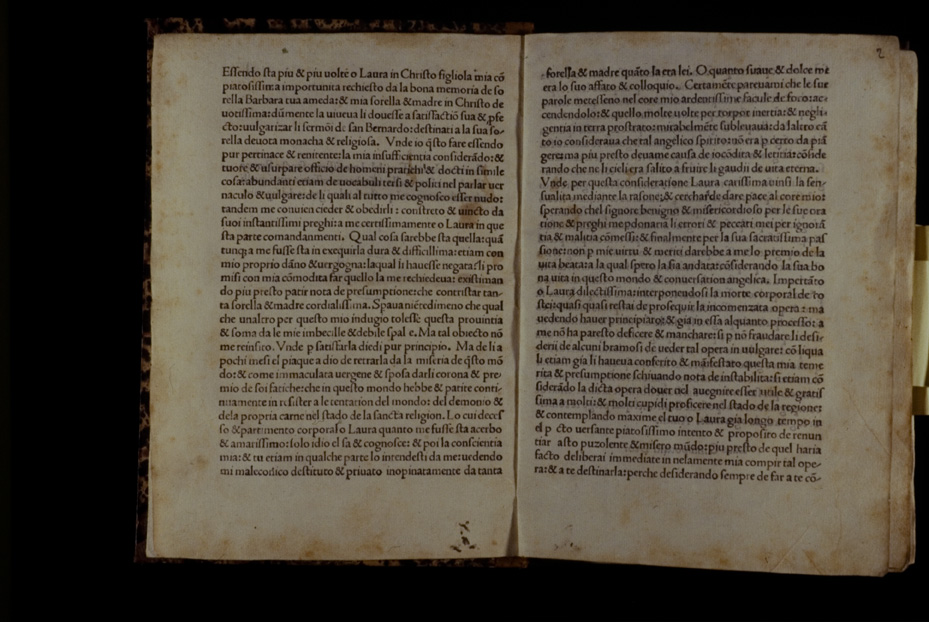 Essendo sta piu & piu uolte o Laura in Christo figliola mia cõ
piatosissima importunita rechiesto da la bona memoria de so
rella Barbara tua ameda: & mia sorella & madre in Christo de
uotissima: dũmente la uiueua li douesse a satisfactiõ sua & pfe
cto: uulgarizar li sermõi de san Bernardo: destinati a la sua so-
rella deuota monacha & religiosa. Vnde io q̃sto fare essendo
pur pertinace & renitente: la mia insufficientia considerãdo: &
tuore & usurpare officio de homeni pratichi & docti in simile
cosa: abundanti etiam de uocabuli tersi & politi nel parlar uer
naculo & uulgare: de li quali al tutto me cognosco esser nudo:
tandem me conuien cieder & obedirli: constreto & uincto da
suoi instantissimi preghi: a me certissimamente o Laura in que
sta parte comandamenti. Qual cosa sarebbe sta quella: quã
tunq̃ a me fusse sta in exequirla dura & difficillima: etiam con
mio proprio dãno & uergogna: laqual li hauesse negata: si pro
miss con mia cõmodita far quello la me rechiedeua: existiman
do piu presto patir nota de presumptione: che contristar tan-
ta sorella & madre cordialissima. Spaua niẽtedimeno che qual
che unaltro per questo mio indugio tolesse questa prouintia
& soma da le mie imbecille & debile spal e. Ma tal obiecto nõ
me reinsito. Vnde p satisfarla diedi pur principio. Ma de li a
pochi mesi el piaque a dio de retrarla da la miseria de q̃sto mõ
do: & come immaculara uergene & sposa darli corona & pre
mio de soi fatiche: che in questo mondo hebbe & patite conti-
nuamente in resister a le tentation del mondo: del demonio &
dela propria carne nel stado de la sancta religion. Lo cui deces
so & partimento corporal o Laura quanto me fusse sta acerbo
& amarissimo: solo idio el sa & cognosce: & poi la conscientia
mia: & tu etiam in qualche parte lo intendesti da me: uedendo
mi malecolico destituto & priuato inopinatamente da tanta
2
sorella & madre quãto la era lei. O quanto suaue & dolce me
era lo suo affato & colloquio. Certamẽte pareuami che le sue
parole metesseno nel core mio ardentissime facule de foco: ac-
cendendolo: & quello molte uolte per torpor inertia: & negli-
gentia in terra prostrato: mirabelmẽte subleuaua: da lalito cã
to io consideraua che tal angelico spirito: nõ era p certo da piã
gere: ma piu presto deuame causa de iocõdita & letitia: cõside
rando che ne li cieli era salito a fruir li gaudii de uita eterna.
Vnde per questa consideratione Laura carissima uinsi la sen-
sualita mediante la rasone: & cerchai de dare pace al core mio:
sperando chel signore benigno & misericordioso per le sue ora
tione & preghi me pdonaria li errori & peccati mei per ignorã
tia & malitia cõmessi: & finalmente per la sua sacratissima pas
sione: non p mie uirtu & meriti darebbe a me lo premio de la
uita beata: a la qual spero la sia andata: cõsiderando la sua bo
na uita in questo mondo & conuersation angelica. Impertãto
o Laura dilectissima: interponendosi la morte corporal de
si: quasi restai de prosequir la incomenzata opera: ma
uedendo hauer principiato: & gia in essa alquanto processo: a
me nõ ha paresto deficere & manchare: si p nõ fraudare li desi-
derii de alcuni bramosi de ueder tal opera in uulgare: cõ liqua
li etiam gia li haueua conferito & mãifestato questa mia teme
rita & presumptione schiuando nota de instabilita: si etiam cõ
siderãdo la dicta opera douer nel auegnire esser utile & gratis
sima a molti: & molci cupidi proficere nel stado de la regione:
& contemplando maxime el tuo o Laura gia longo tempo in
el p cto uersante piatosissimo intento & proposito de renun
tiar asto puzolente & misero mũdo: piu presto de quel haria
facto deliberai immediate in nelamente mia compir tal ope-
ra: & a te destinarla: perche desiderando sempre de far a te cõ-